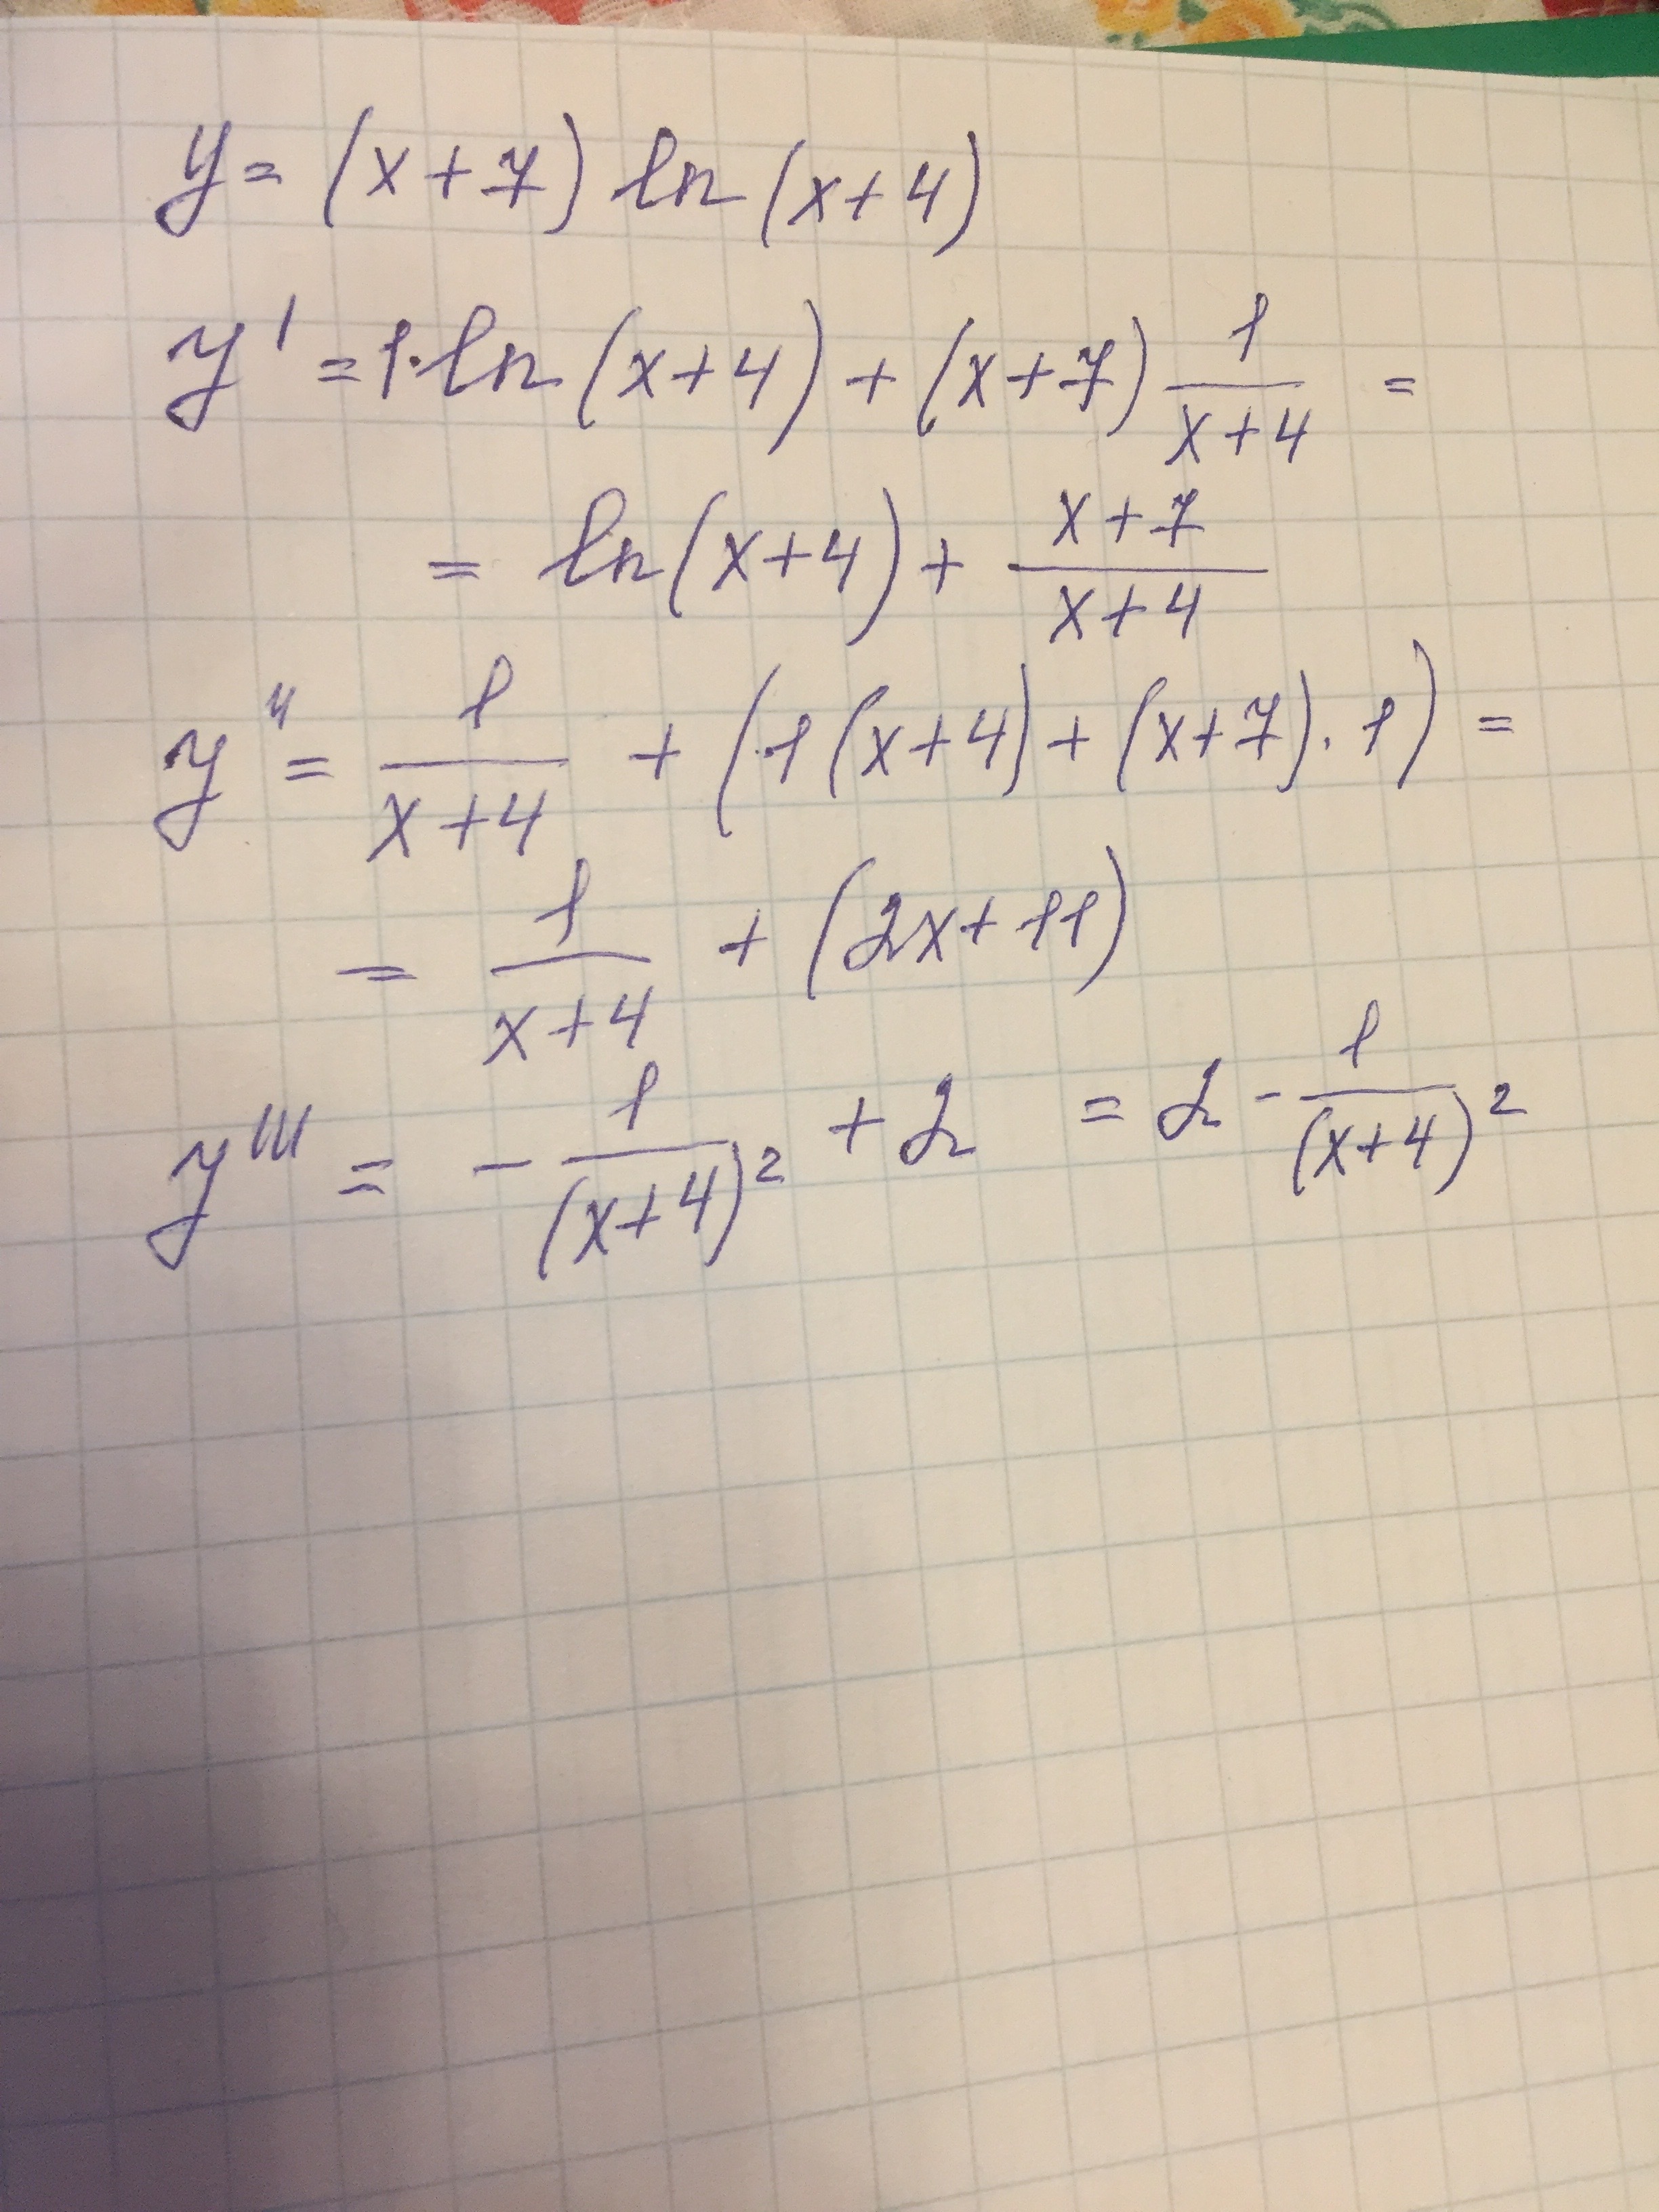 y = (x+7) ln (x+4)
y' = 1·ln (x+4) + (x+7) 1/(x+4) =
= ln (x+4) + (x+7)/(x+4)
y'' = 1/(x+4) + (·1 (x+4) + (x+7) · 1) =
= 1/(x+4) + (2x+11)
y''' = - 1/(x+4)² + 2 = 2 - 1/(x+4)²